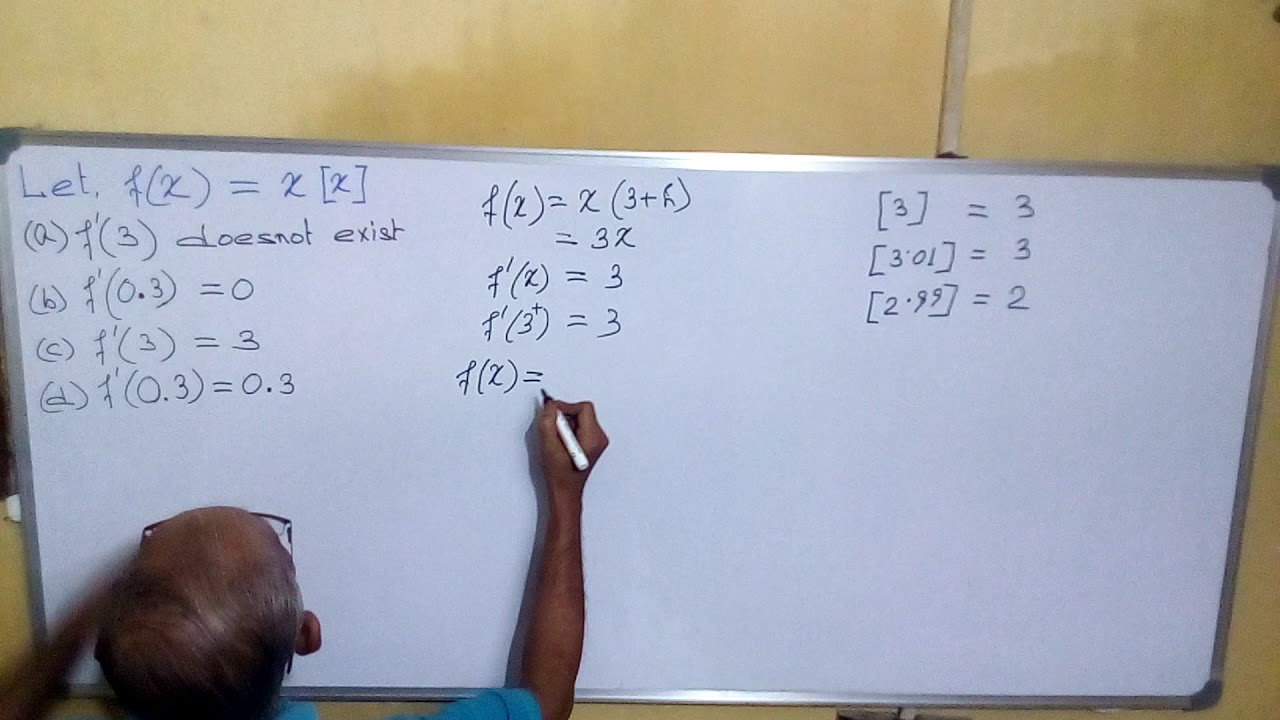 Let, f(x) = x [x]
(a) f'(3) doesnot exist
(b) f'(0.3) = 0
(c) f'(3) = 3
(d) f'(0.3) = 0.3
f(x) = x (3+h)
= 3x
f'(x) = 3
f'(3⁺) = 3
f(x) =
[3] = 3
[3.01] = 3
[2.99] = 2